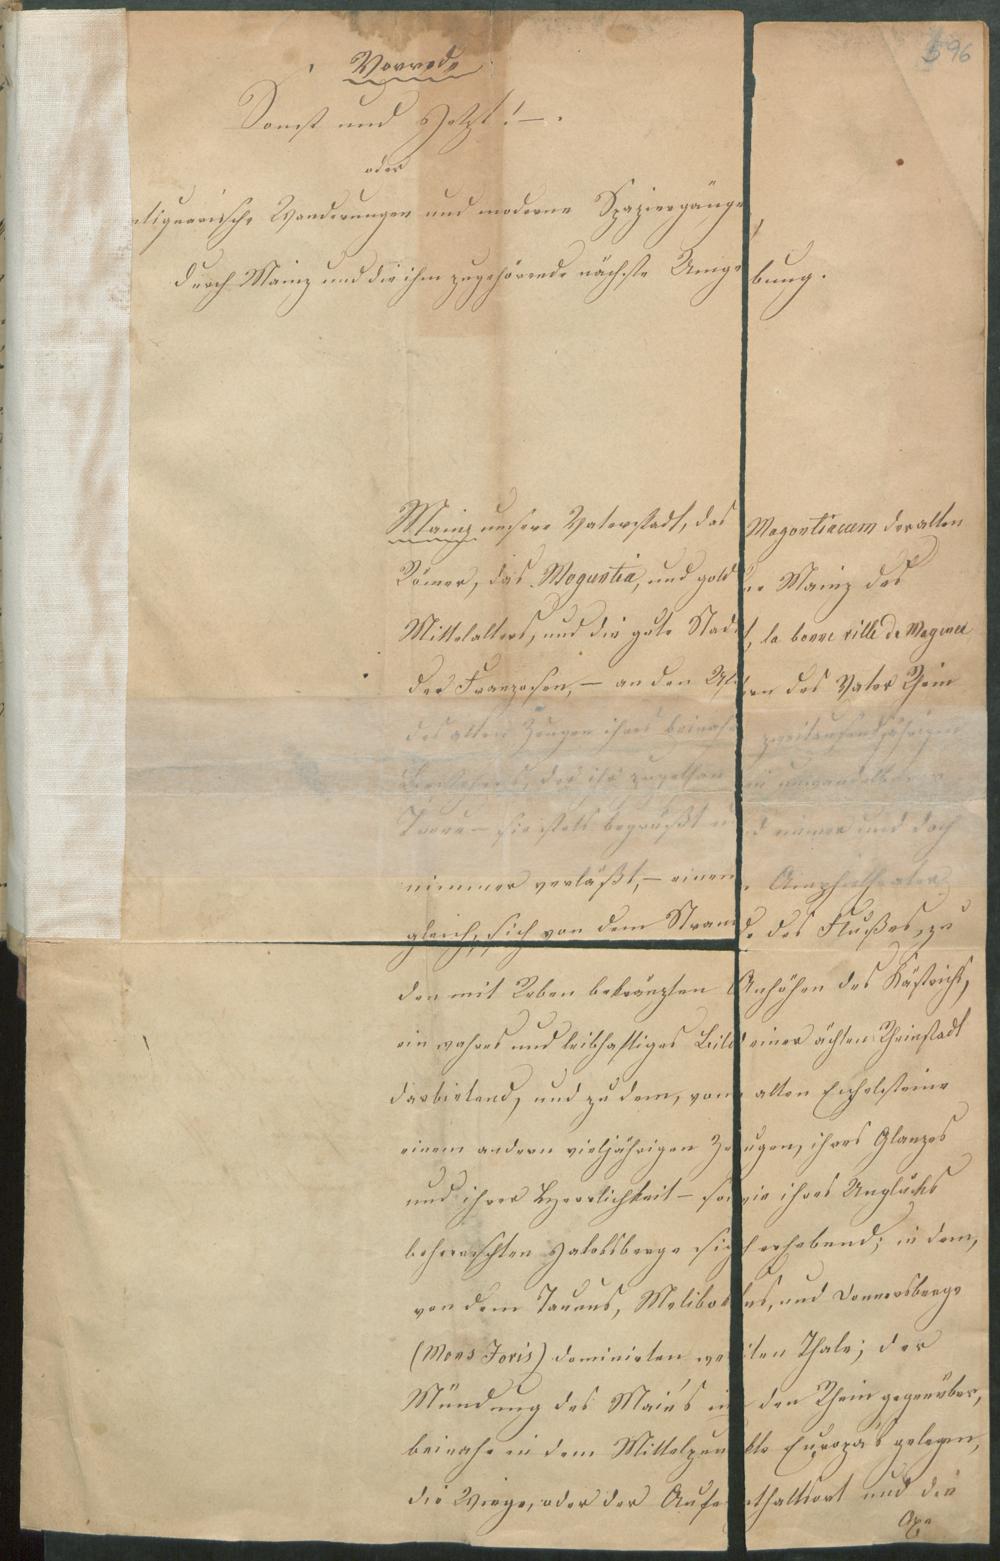 596
Vorrede
Sonst und Jetzt! —.
oder
antiquarische Wanderungen und moderne Spaziergänge,
durch Mainz und die ihm zugehörende nächste Umgebung.
Mainz unsere Vaterstadt, das Magontiacum der alten
Römer, das Moguntia, und goldene Mainz des
Mittelalters, und die gute Stadt, la bonne ville de Mayence
der Franzosen, — an den Ufern des Vater Rhein
des alten Zeugen ihres beinahe zweitausendjährigen
Bestehens, der ihr zugethan in unwandelbarer
Treue — sie stets begrüßt und immer und doch
nimmer verläßt, — einem Amphitheater
gleich, sich von dem Strande des Flußes, zu
den mit Reben bekränzten Anhöhen des Kästrichs,
ein wahres und leibhaftiges Bild einer ächten Rheinstadt
darbietend, und zu dem, vom alten Eichelsteine
einem andern vieljährigen Zeugen, ihres Glanzes
und ihrer Herrlichkeit — sowie ihres Unglücks
beherrschten Jakobsberge sich erhebend; in dem,
von dem Taunus, Melibokus, und Donnersberge
(Mons Jovis) dominirten weiten Thale; der
Mündung des Main's in den Rhein gegenüber,
beinahe in dem Mittelpunkte Europa's gelegen,
die Wiege, oder der Aufenthaltsort und die